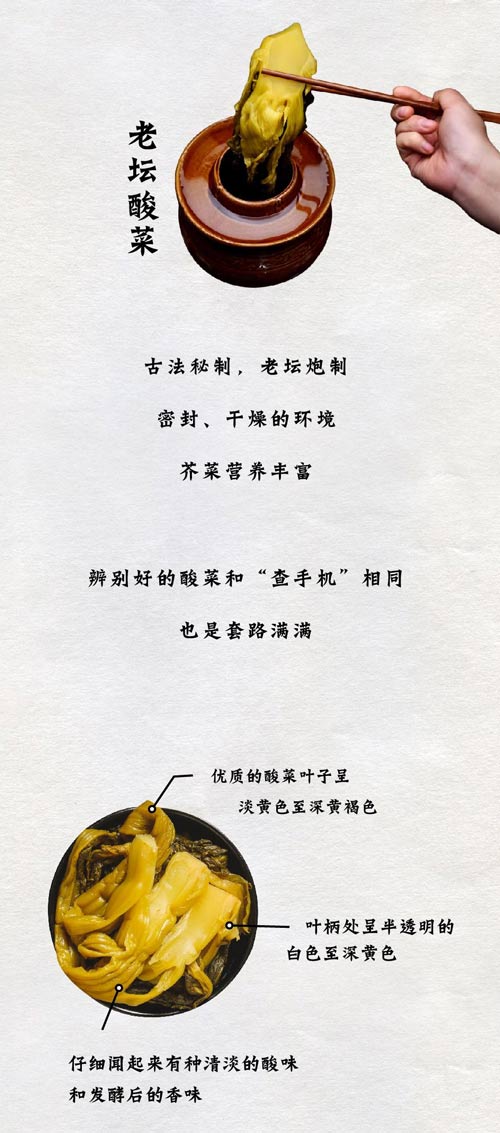 老坛酸菜
古法秘制，老坛炮制
密封、干燥的环境
芥菜营养丰富
辨别好的酸菜和“查手机”相同
也是套路满满
优质的酸菜叶子呈
淡黄色至深黄褐色
叶柄处呈半透明的
白色至深黄色
仔细闻起来有种清淡的酸味
和发酵后的香味